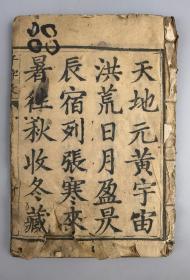 天地元黃宇宙
洪荒日月盈昃
辰宿列張寒來
暑往秋收冬藏